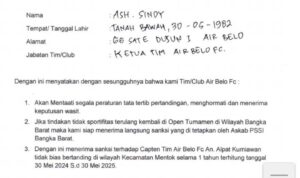 Nama : ASH. SINDY
Tempat/ Tanggal Lahir : TANAH BAWAH, 30-06-1982
Alamat : GG SATE DUSUN I AIR BELO
Jabatan Tim/Club : KETUA TIM AIR BELO FC.
Dengan ini menyatakan dengan sesungguhnya bahwa kami Tim/Club Air Belo Fc :
1. Akan Mentaati segala peraturan tata tertib pertandingan, menghormati dan menerima
keputusan wasit
2. Jika tindakan tidak sportifitas terulang kembali di Open Turnamen di Wilayah Bangka
Barat maka kami siap menerima langsung sanksi yang di tetapkan oleh Askab PSSI
Bangka Barat.
3. Dengan ini menerima sanksi terhadap Capten Tim Air Belo Fc An. Alpat Kurniawan
tidak bias bertanding di wilayah Kecamatan Mentok selama 1 tahun terhitung tanggal
30 Mei 2024 S.d 30 Mei 2025.